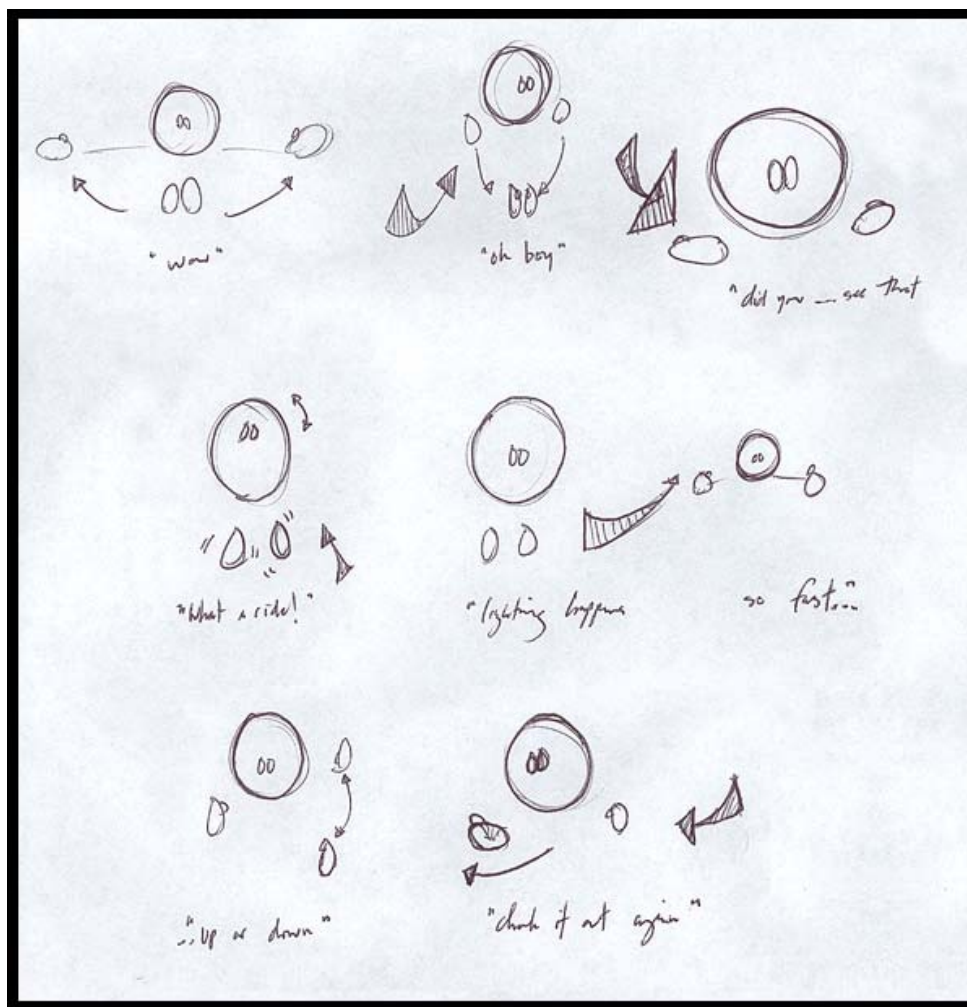 "wow"
"oh boy"
"did you ... see that
"What a ride!"
"lighting happens
so fast..."
"...up or down"
"check it out again"